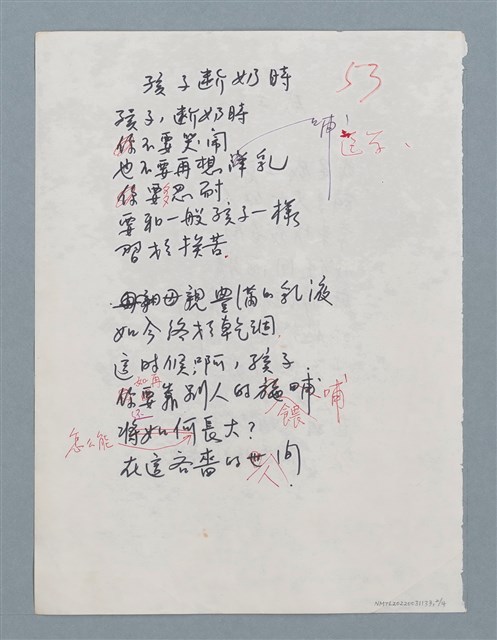 孩子斷奶時
53
孩子,斷奶時
你不要哭鬧
哺
也不要再想 乳
你要忍耐 多
要和一般孩子一樣
習於挨苦
母親豐滿的乳液
如今終於乾涸
這时候啊,孩子
如再
你要靠別人的 哺 餵 哺
还
將如何長大?
怎么能
在這吝嗇的世间
人